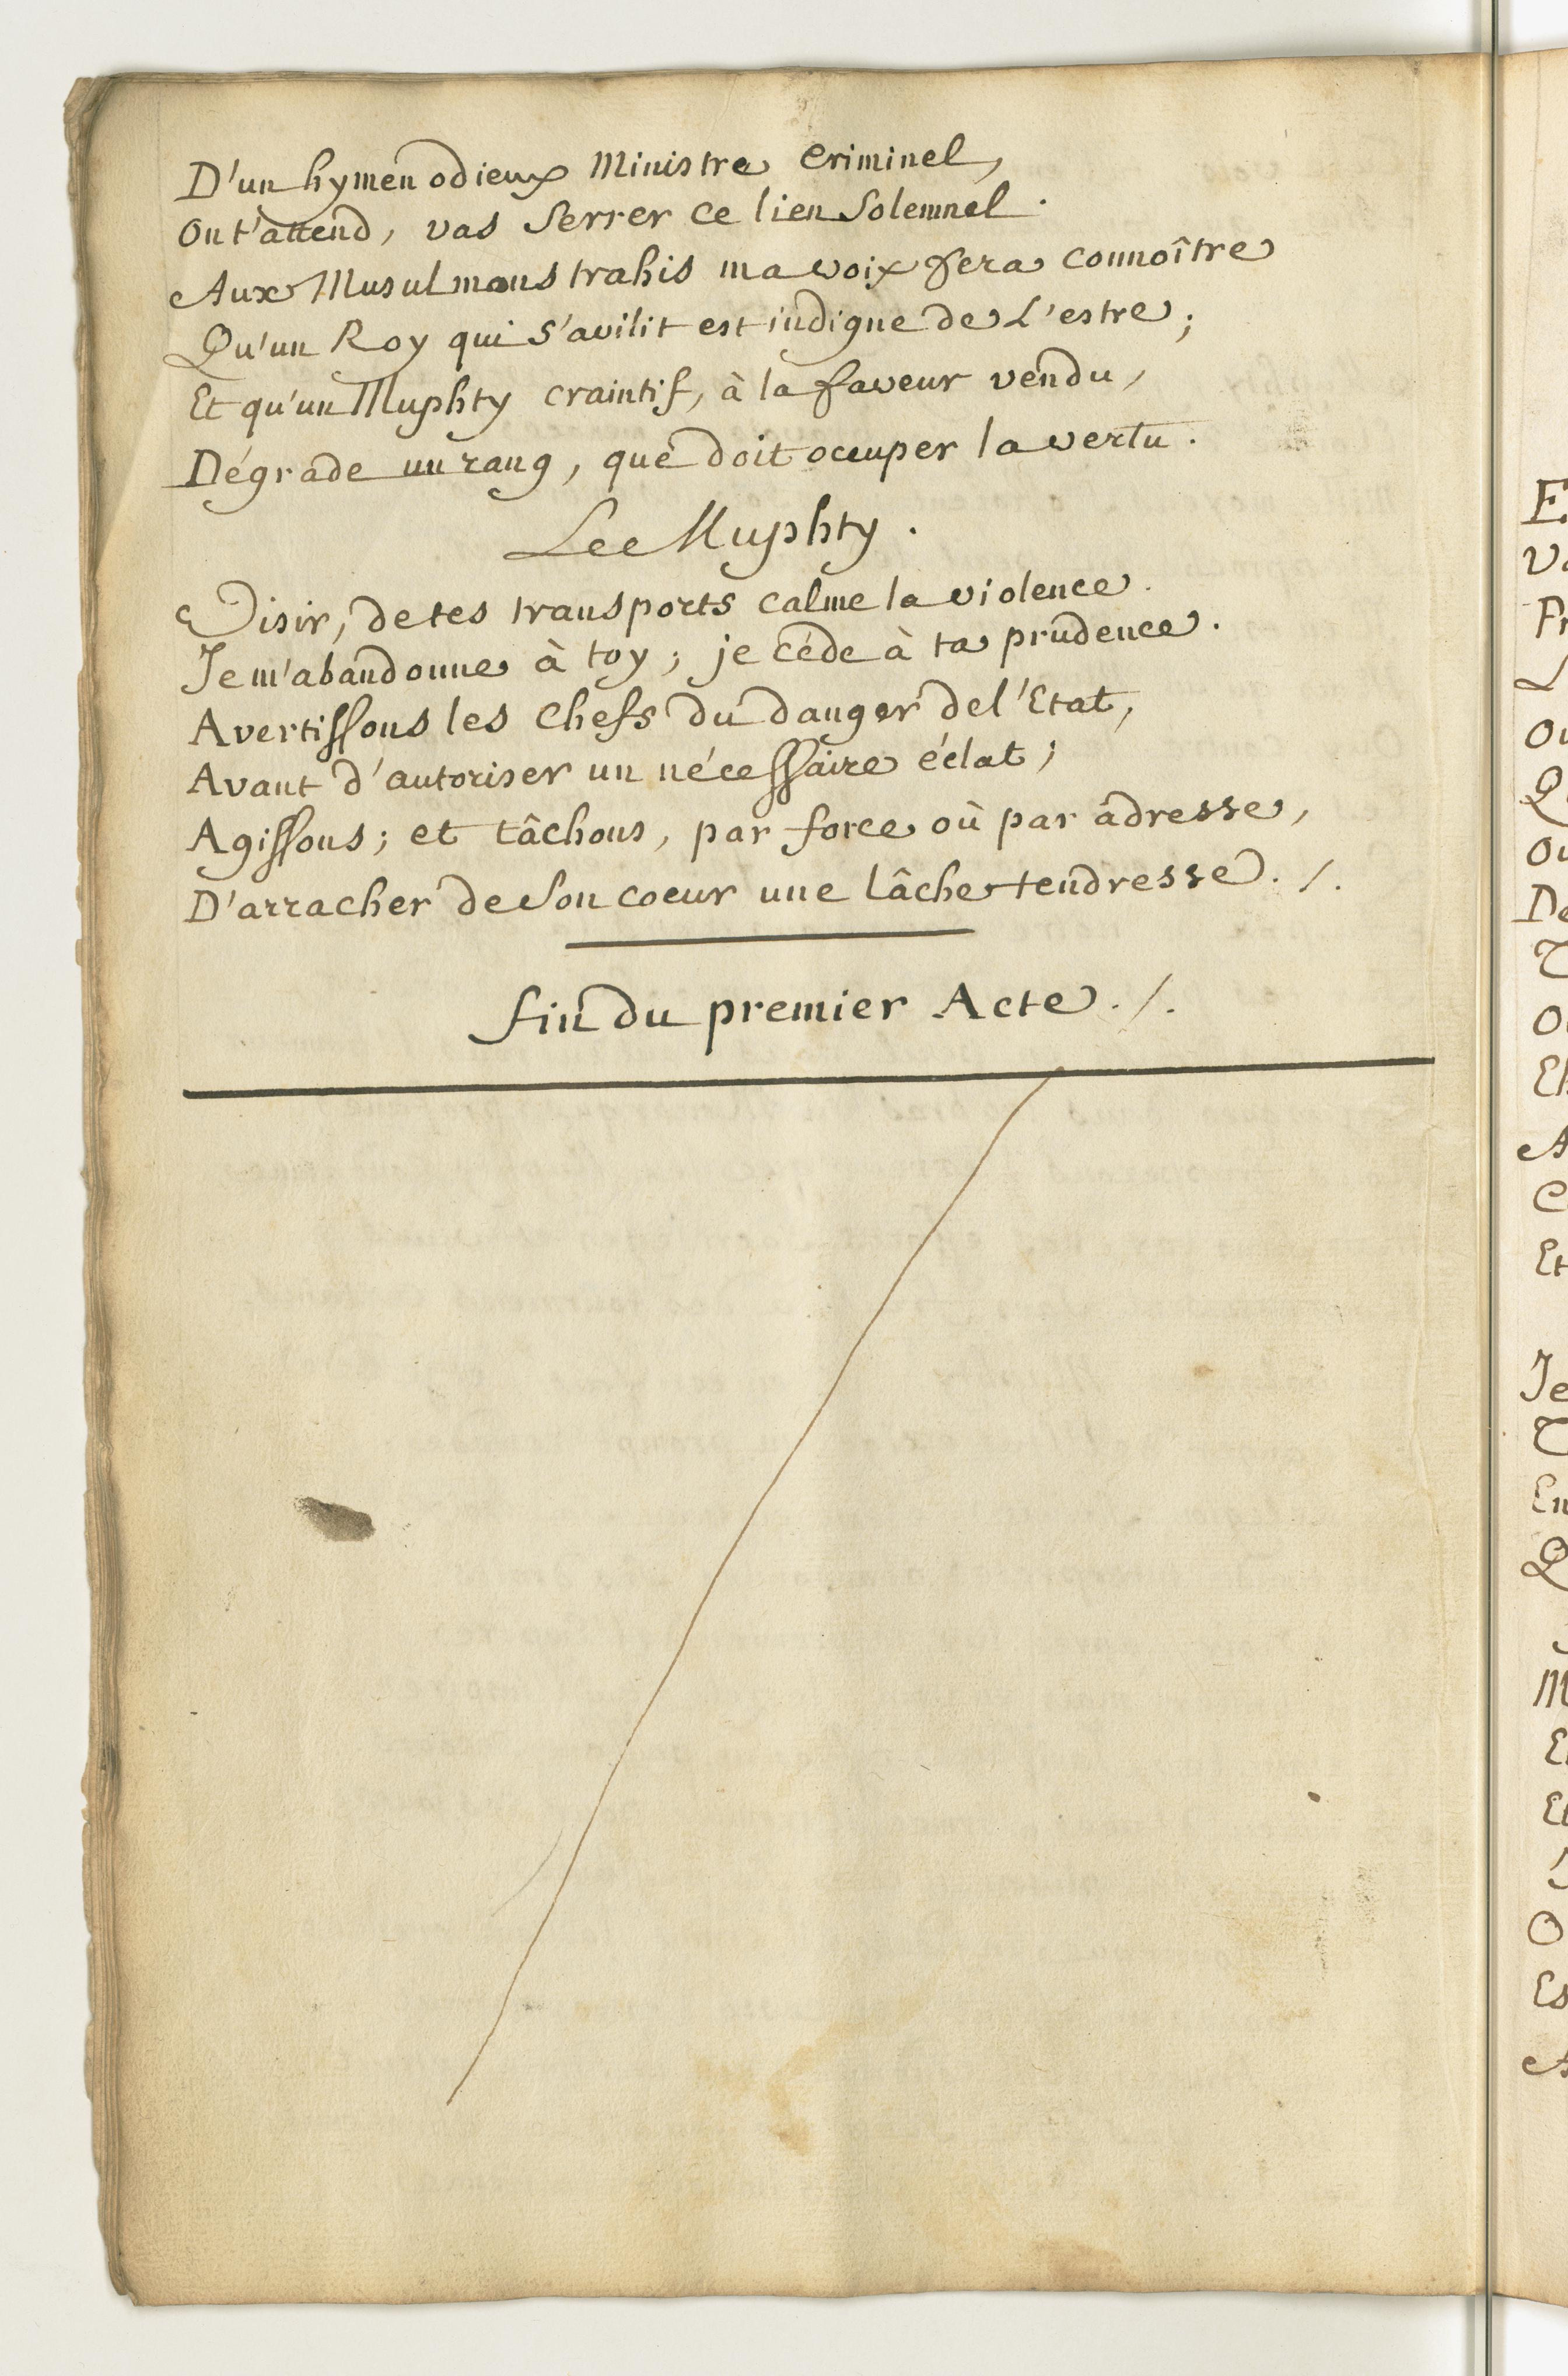 D'un hymen odieux Ministre Criminel,
On t'attend, vas Serrer ce lien Solemnel.
Aux Musulmans trahis ma voix fera connoître
Qu'un Roy qui s'avilit est indigne de L'estre;
Et qu'un Muphty craintif, à la faveur vendu,
Dégrade un rang, que doit occuper la vertu.
Le Muphty.
Visir, de tes transports calme la violence.
Je m'abandonne à toy; je céde à ta prudence.
Avertissons les Chefs du danger de l'Etat,
Avant d'autoriser un nécessaire éclat;
Agissons; et tâchons, par force où par adresse,
D'arracher de Son coeur une lâche tendresse. /.
fin du premier Acte. /.
E
Je
Et
Es